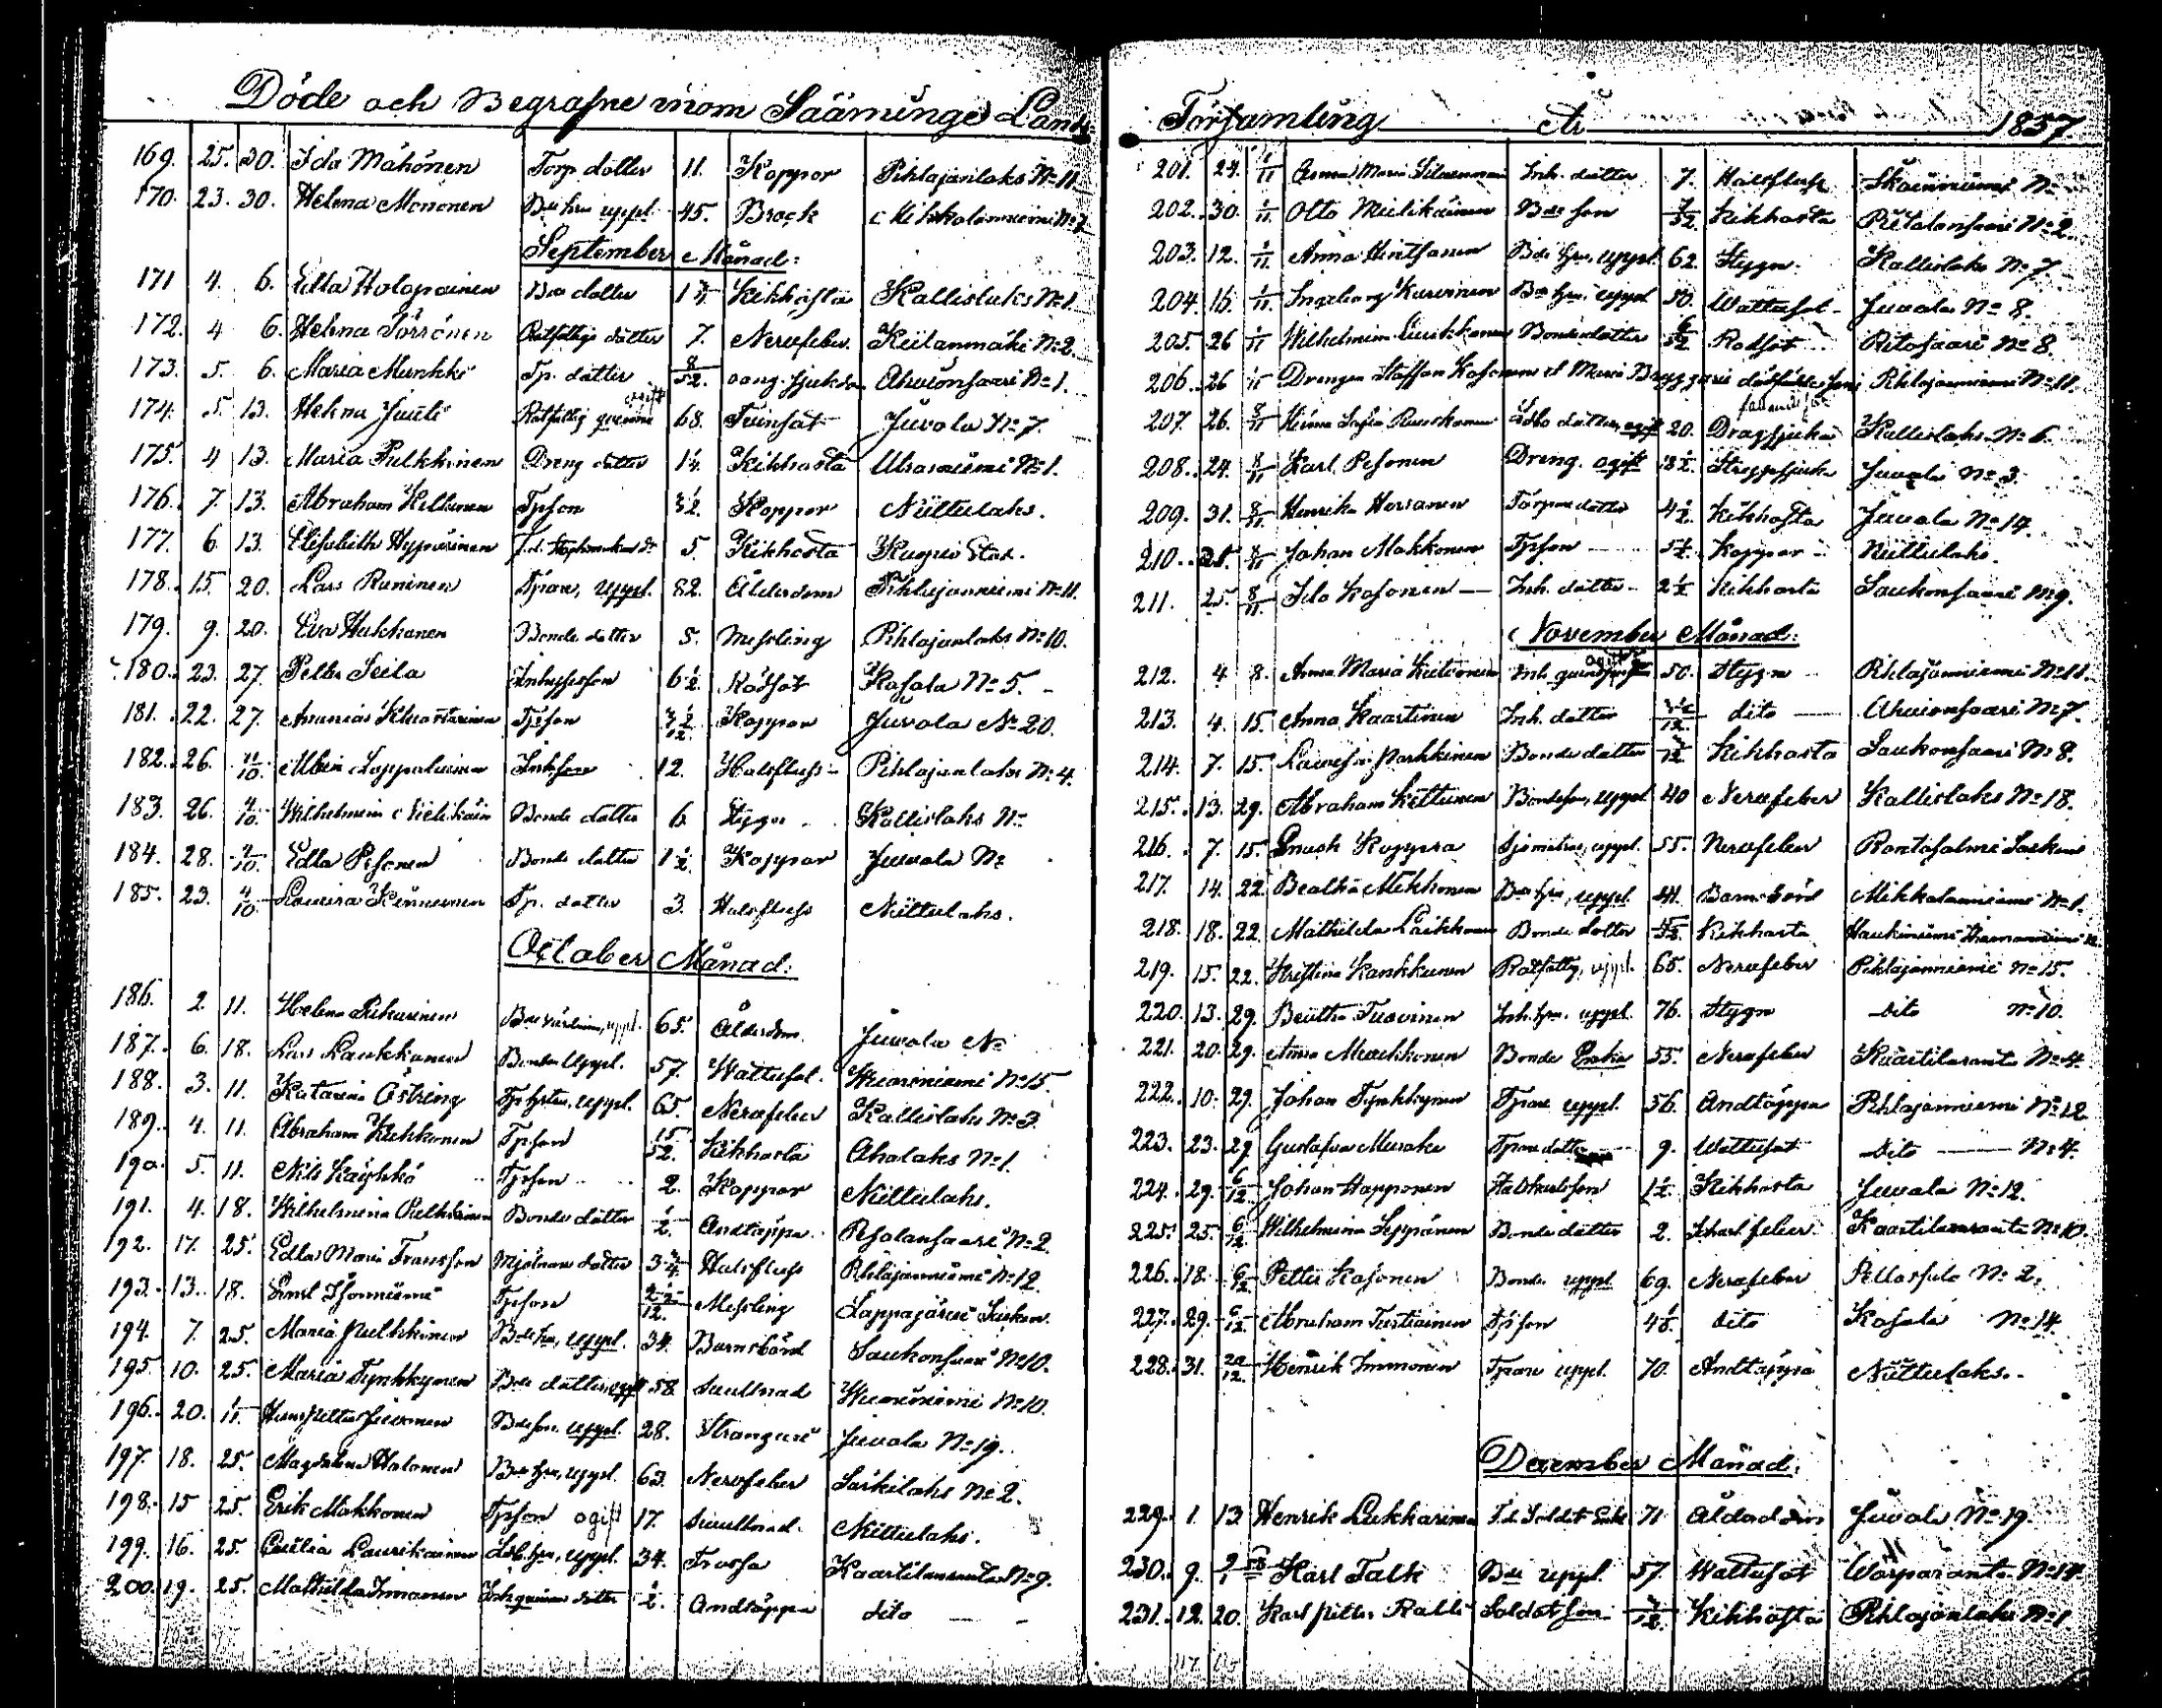 Döde och Begrafne inom Sääminge Lands
169. 25. 30. Ida Mähönen Torp dotter 11. Koppor Pihlajanlaks No 11
170. 23. 30. Helena Mononen Bde hru uppl. 45. Brock Mikkolanniemi No 7
September Månad:
171 4. 6. Edla Holopainen Bde dotter Kikhosta Kallislaks No 1.
172. 4 6. Helena Törrönen Rotfattigs dotter 7. Nervfeber. Kiilanmäki No 2.
173. 5. 6. Maria Munkki Tp. dotter 8/52. oang. sjukdom Ahvionsaari No 1.
174. 5. 13. Helena Juuti Rotfattig qvinna ogift 68. Tvinsot Juvola No 7.
175. 4 13. Maria Pulkkinen Dreng dotter 1 1/4. Kikhosta Uhaniemi No 1.
176. 7. 13. Abraham Kettunen Tpson 3 1/2. Koppor Niittulaks.
177. 6. 13. Elisabeth Hyvärinen 5. Kikhosta Kuopio Stad.
178. 15. 20. Lars Runinen Tpare, uppl. 82. Ålderdom Pihlajanniemi No 11.
179. 9. 20. Eva Hukkanen Bonde dotter 5. Messling Pihlajanlaks No 10.
180. 23. 27. Petter Seila Inhysesson 6 1/2. Rödsot Kosola No 5.
181. 22. 27. Ananias Kuortarinen Tpson Koppor Juvola No 20.
182. 26. 4/10. Albin Lappalainen Inhson 12. Halsfluss Pihlajanlaks No 4.
183. 26. 4/10. Wilhelmina Bonde dotter 6 Stygn Kallislaks No
184. 28. 4/10. Edla Pesonen Bonde dotter 1 1/2. Koppor Juvola No
185. 23. 4/10. Lovisa Kinnunen Tp. dotter 3. Halsfluss Niittulaks.
October Månad:
186. 2 11. Helena Bde värdinna, uppl. 65. Ålderdom. Juvola No
187. 6. 18. Lars Laukkanen Bonde uppl. 57. Wattusot. Wuoriniemi No 15.
188. 3. 11. Katarina Östring uppl. 65. Nervfeber Kallislaks No 3.
189. 4. 11. Abraham Kukkonen Tpson 15/52. Kikhosta Ahalaks No 1.
190. 5. 11. Nils Käyhkö Tpson 2. Koppor Niittulaks.
191. 4. 18. Wilhelmina Bonde dotter 1/2. Andtäppa Pesolansaari No 2.
192. 17. 25. Edla Maria Fransson Mjölnare dotter 3 3/4. Halsfluss Pihlajanniemi No 12.
193. 13. 18. Ernst Tpson Messling Lappajärvi Socken.
194. 7. 25. Maria Pulkkinen Bde hru, uppl. 34. Barnsbörd Saukonsaari No 10.
195. 10. 25. Maria Tynkkynen Bde dotter, ogift 58. Svullnad Wuoriniemi No 10.
196. 20. 1/11. Hans Petter Juvonen Bdeson. uppl. 28. Strangurie Juvola No 19.
197. 18. 25. Magdalena Halonen Bde hru, uppl. 63. Nervfeber Särkilaks No 2.
198. 15 25. Erik Makkonen Tpson ogift 17. Svullnad. Niittulaks.
199. 16. 25. Cecilia Laurikainen hru, uppl. 34. Frossa Kaartilanranta No 9.
200. 19. 25. Mathilda Immonen Inh qvinnas dotter 1/2. Andtäppa dito
Församling År 1857
201. 24. 1/11 Anna Maria Inh. dotter 7. Halsfluss No
202. 30. 1/11. Otto Miilikäinen Bde son Kikhosta Pesolansaari No 2.
203. 12. 1/11. Anna Hintsanen Bde hru, uppl. 62. Stygn. Kallislaks No 7.
204. 16. 1/11 Ingeborg Kurvinen Bde hru. uppl 50. Wattusot Juvola No 8.
205. 26 1/11 Wilhelmina Bonde dotter Rödsot Ritosaari No 8.
206. 26 1/11 Drengen Staffan Kosonens et Maria dödfödde son Pihlajaniemi No 11.
207. 26. 8/11 Sofia Ruuskanen dotter, ogift 20. Dragsjuka fallandesot Kallislaks No 6.
208. 24. 8/11 Karl Pesonen Dreng. ogift Juvola No 3.
209. 31. 8/11 Henrika Torpare dotter 4 1/2. Kikhosta Juvola No 14.
210. 21. 8/11 Johan Makkonen Tpson 5 1/2. Koppor Niittulaks.
211. 25. 8/11. Ida Kosonen Inh. dotter 2 1/2 Kikhosta Saukonsaari No 9.
November Månad:
212. 4 8. Anna Maria Inh qvinsperson ogift 50. Stygn Pihlajanniemi No 11.
213. 4. 15. Anna Kaartinen Inh. dotter dito Ahvionsaari No 7.
214. 7. 15. Lovisa Parkkinen Bonde dotter Kikhosta Saukonsaari No 8.
215. 13. 29. Abraham Kettunen Bondeson, uppl 40 Nervfeber Kallislaks No 18.
216. 7. 15. Enock Koppra uppl. 55. Nervfeber Rantasalmi Socken
217. 14. 22. Beatha Mikkonen Bde hru, uppl. 41. Barnsbörd Mikkolanniemi No 1.
218. 18. 22. Mathilda Laukkanen Bonde dotter Kikhosta Haukiniemi
219. 15. 22. Kristina Kankkunen Rotfattig, uppl. 65. Nervfeber Pihlajanniemi No 15.
220. 13. 29. Beatha Tuovinen Inh. hru. uppl. 76. Stygn dito No 10.
221. 20. 29. Anna Muukkonen Bonde Enka 55. Nervfeber Kaartilanranta No 4.
222. 10. 29. Johan Tynkkynen Tpare uppl. 56. Andtäppa Pihlajanniemi No 12
223. 23. 29. Gustafva Murake Tpare dotter 9. Wattusot dito No 4.
224. 29. 6/12 Johan Happonen 1 1/2. Kikhosta Juvola No 12.
225. 25. 6/12 Wilhelmina Leppänen Bonde dotter 2. Skarl feber. Kaartilanranta No 10.
226. 18. 6/12 Petter Kosonen Bonde uppl 69. Nervfeber Pellossalo No 2.
227. 29. 6/12 Abraham Turtiainen Tpson dito Kosola No 14.
228. 31. 20/12. Henrik Immonen Tpare uppl. 70. Andtäppa Niittulaks.
December Månad:
229. 1. 13 Henrik Lukkarinen F.d. Soldat Enkl 71 Ålderdom Juvola No 19.
230. 9. Karl Falk Bde uppl. 57. Wattusot Warparanta No 14.
231. 12. 20. Karl Petter Ralli Soldatson Kikhosta Pihlajanlaks No 1.